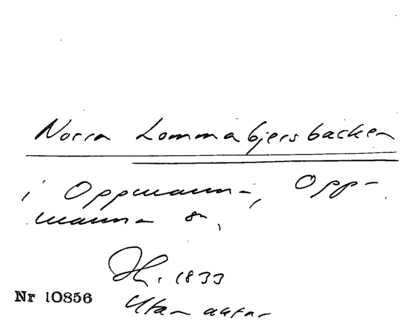 Norra Lommabjersbacken
i Oppmanna, Opp-
manna sn,
H. 1833
Nr 10856
Utan